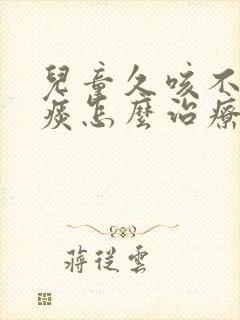 兒童久咳不
痰怎麼治療
蔣從雲